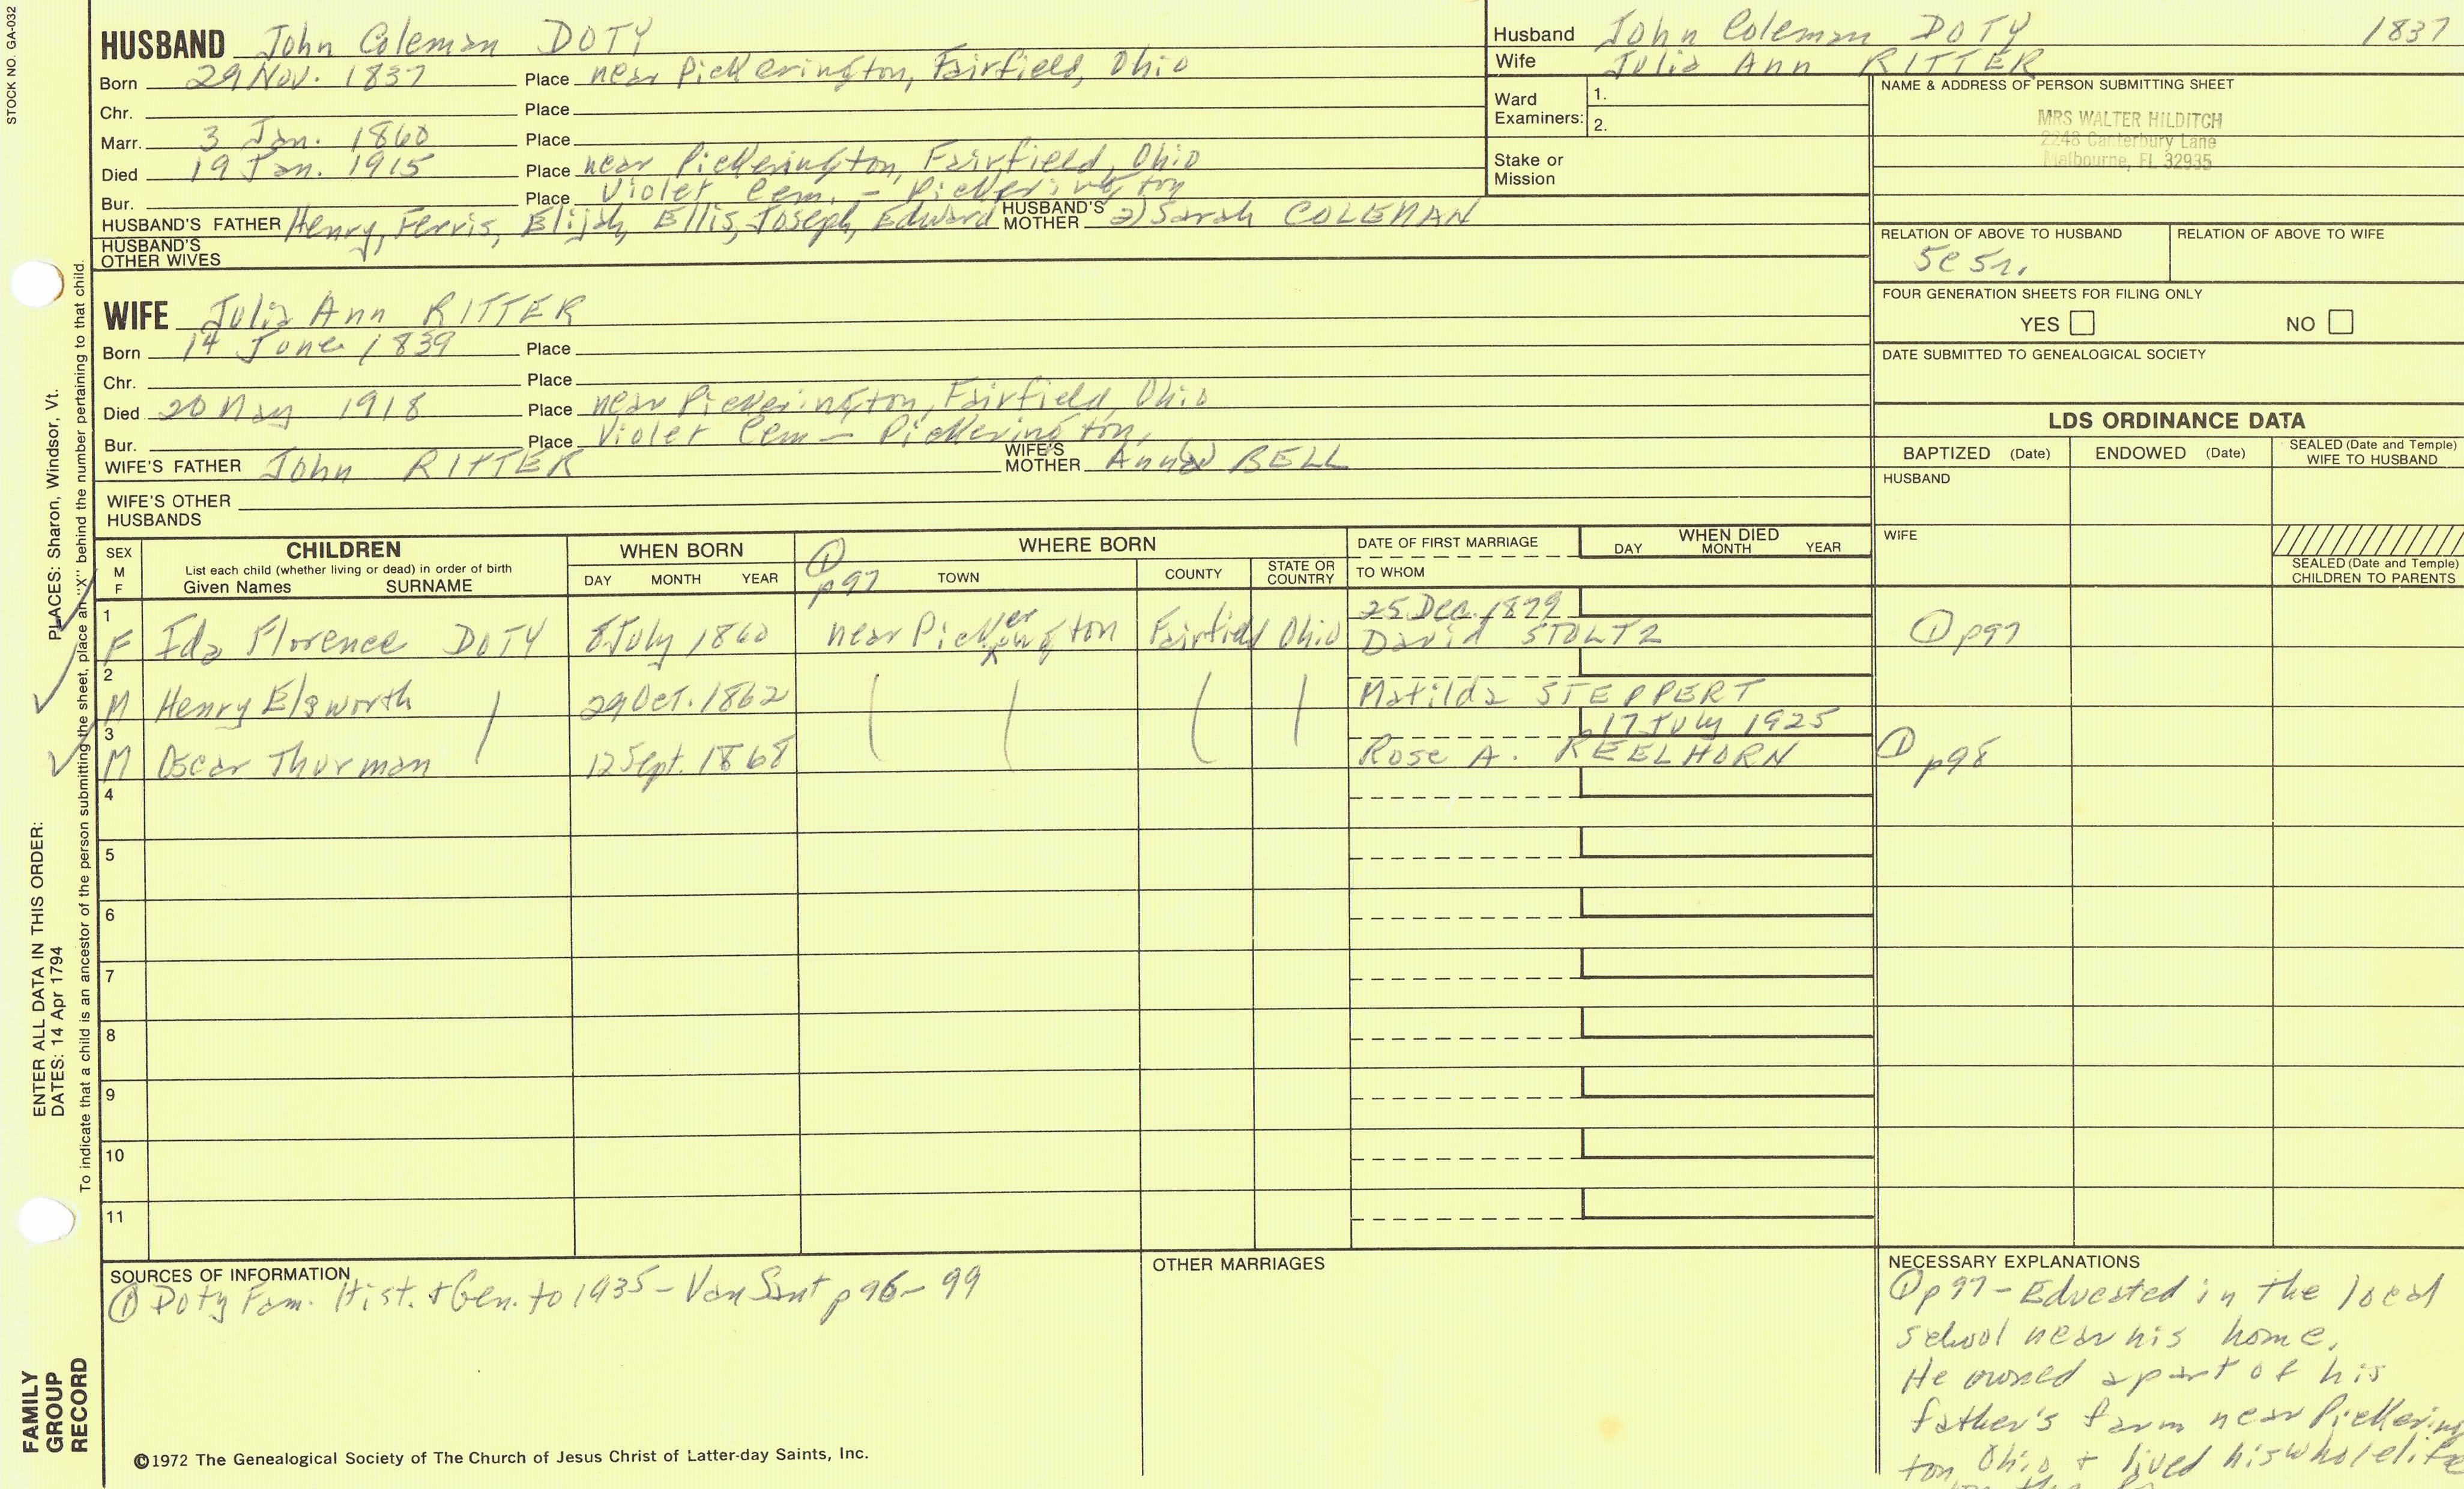 STOCK NO. GA-032
HUSBAND John Coleman DOTY
Born 29 Nov. 1837 Place near Pickerington, Fairfield, Ohio
Chr. Place
Marr. 3 Jan. 1860 Place
Died 19 Jan. 1915 Place near Pickerington, Fairfield, Ohio
Bur. Place Violet Cem. - Pickerington
HUSBAND'S FATHER Henry, Ferris, Elijah, Ellis, Joseph, Edward HUSBAND'S MOTHER 2) Sarah COLEMAN
HUSBAND'S OTHER WIVES
Husband John Coleman DOTY 1837
Wife Julia Ann RITTER
Ward Examiners: 1.
2.
Stake or Mission
NAME & ADDRESS OF PERSON SUBMITTING SHEET
MRS WALTER HILDITCH
2248 Canterbury Lane
Melbourne, FL 32935
RELATION OF ABOVE TO HUSBAND RELATION OF ABOVE TO WIFE
5c 5r.
FOUR GENERATION SHEETS FOR FILING ONLY
YES NO
DATE SUBMITTED TO GENEALOGICAL SOCIETY
WIFE Julia Ann RITTER
Born 14 June 1839 Place
Chr. Place
Died 20 May 1918 Place near Pickerington, Fairfield, Ohio
Bur. Place Violet Cem - Pickerington,
WIFE'S FATHER John RITTER WIFE'S MOTHER Ann(a) BELL
WIFE'S OTHER HUSBANDS
LDS ORDINANCE DATA
BAPTIZED (Date) ENDOWED (Date) SEALED (Date and Temple) WIFE TO HUSBAND
HUSBAND
WIFE
SEALED (Date and Temple) CHILDREN TO PARENTS
SEX M F
CHILDREN
List each child (whether living or dead) in order of birth
Given Names SURNAME
WHEN BORN
DAY MONTH YEAR
① p97
WHERE BORN
TOWN COUNTY STATE OR COUNTRY
DATE OF FIRST MARRIAGE
TO WHOM
WHEN DIED
DAY MONTH YEAR
1 25 Dec. 1879
F Ida Florence DOTY 8 July 1860 near Pickerington Fairfield Ohio David STOLTZ ① p97
2
M Henry Elsworth 29 Oct. 1862 Matilda STEPPERT
3 17 July 1925
M Oscar Thurman 12 Sept. 1868 Rose A. REELHORN ① p98
4
5
6
7
8
9
10
11
SOURCES OF INFORMATION
① Doty Fam. Hist. + Gen. to 1935 - Van Sant p 96-99
OTHER MARRIAGES
NECESSARY EXPLANATIONS
① p97 - Educated in the local
school near his home.
He owned a part of his
father's farm near Pickering
ton, Ohio + lived his whole life
©1972 The Genealogical Society of The Church of Jesus Christ of Latter-day Saints, Inc.
FAMILY GROUP RECORD
ENTER ALL DATA IN THIS ORDER:
DATES: 14 Apr 1794
PLACES: Sharon, Windsor, Vt.
To indicate that a child is an ancestor of the person submitting the sheet, place an "X" behind the number pertaining to that child.